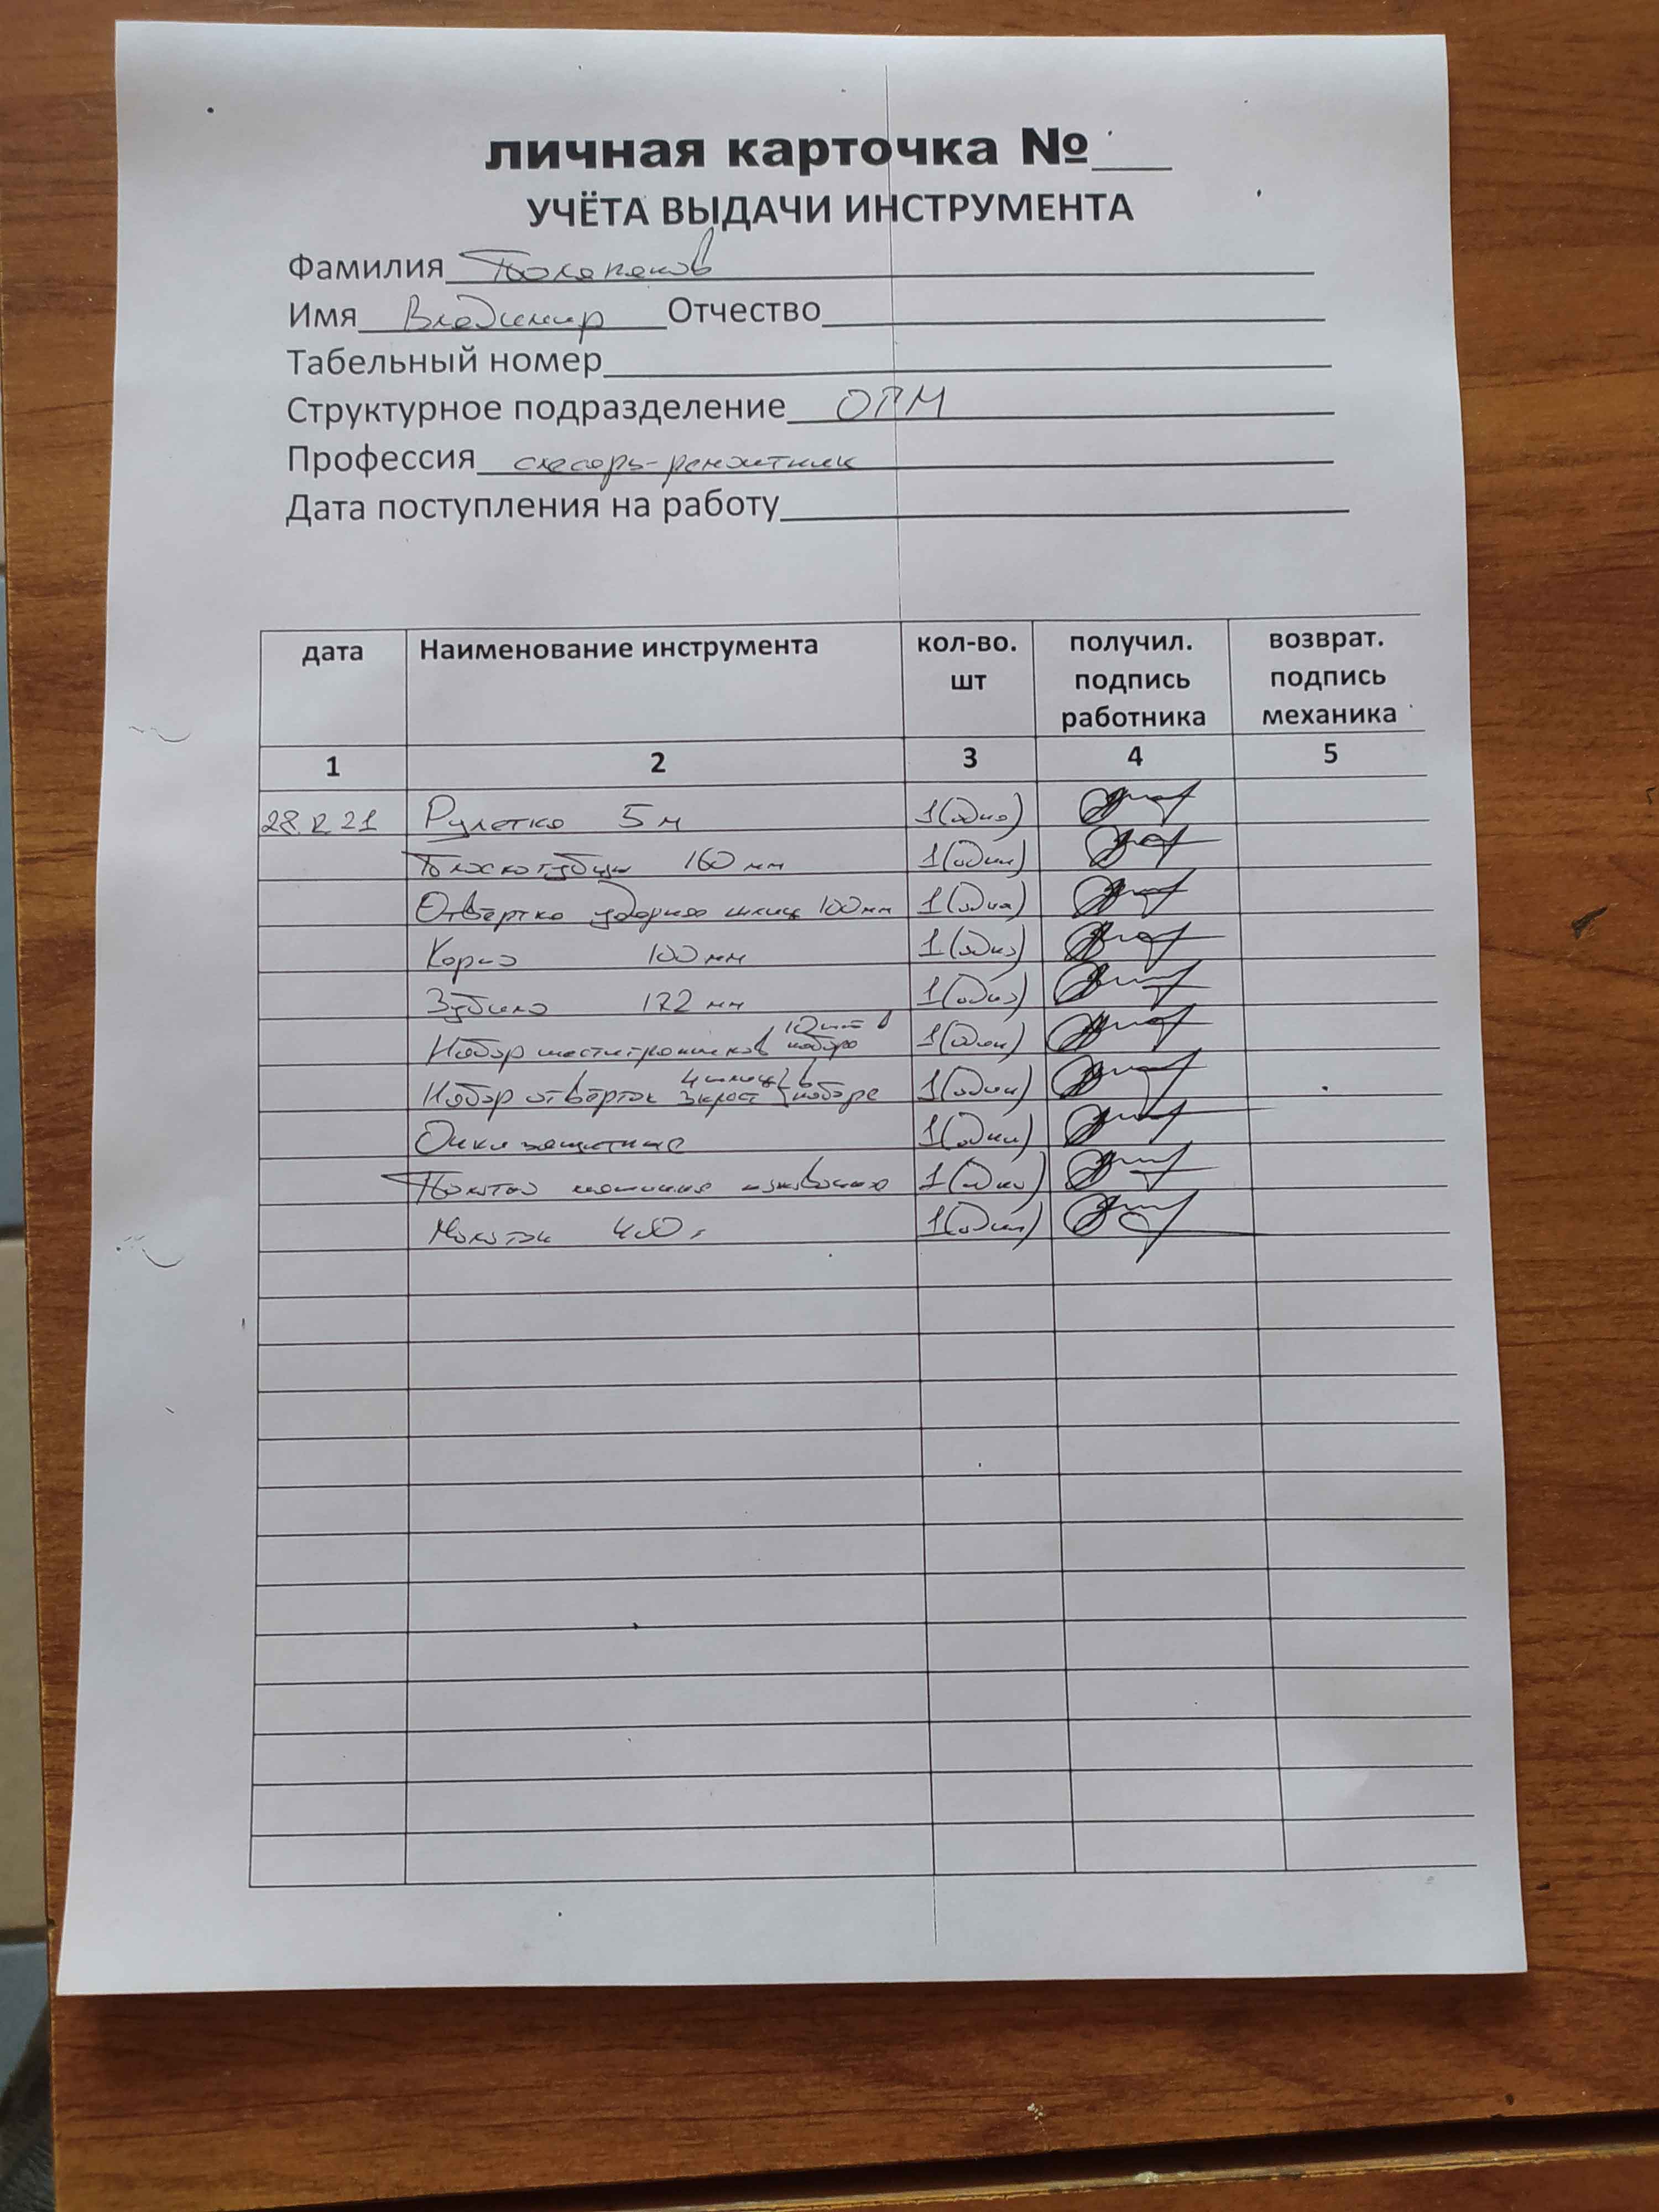 личная карточка №___
УЧЁТА ВЫДАЧИ ИНСТРУМЕНТА
Фамилия
Имя Владимир Отчество
Табельный номер
Структурное подразделение ОРМ
Профессия слесарь-ремонтник
Дата поступления на работу
дата Наименование инструмента кол-во. шт получил. подпись работника возврат. подпись механика
1 2 3 4 5
28.12.21 Рулетка 5м 1(одна)
Плоскогубцы 160 мм 1(один)
Отвёртка ударная шлиц 100мм 1(одна)
Керно 100 мм 1(одно)
Зубило 172 мм 1(одно)
Набор шестигранников 10шт в наборе 1(один)
Набор отвёрток 4шлиц 3крест в наборе 1(один)
Очки защитные 1(один)
1(одно)
Молоток 400г 1(один)